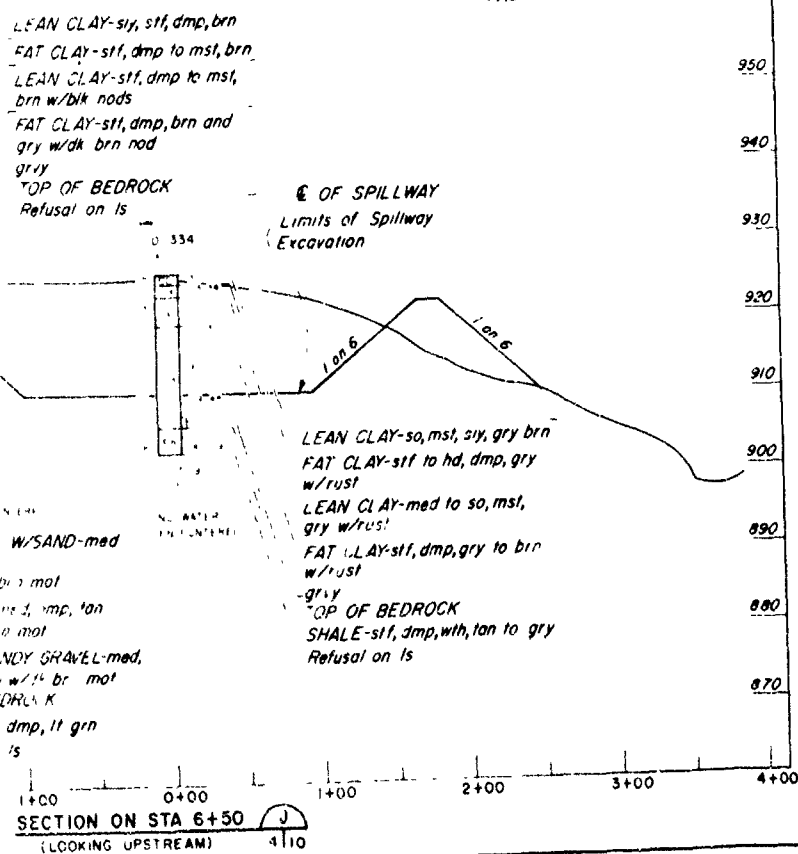 LEAN CLAY-sly, stf, dmp, brn
FAT CLAY-stf, dmp to mst, brn
LEAN CLAY-stf, dmp to mst,
brn w/blk nods
FAT CLAY-stf, dmp, brn and
gry w/dk brn nod
grvy
TOP OF BEDROCK
Refusal on ls
℄ OF SPILLWAY
Limits of Spillway
Excavation
D 334
950
940
930
920
910
900
890
880
870
1 on 6
1 on 6
LEAN CLAY-so, mst, sly, gry brn
FAT CLAY-stf to hd, dmp, gry
w/rust
LEAN CLAY-med to so, mst,
gry w/rust
FAT CLAY-stf, dmp, gry to brn
w/rust
grvy
TOP OF BEDROCK
SHALE-stf, dmp, wth, tan to gry
Refusal on ls
NO WATER
ENCOUNTERED
W/SAND-med
mot
tan
mot
NDY GRAVEL-med,
mot
dmp, lt grn
ls
1+00
0+00
1+00
2+00
3+00
4+00
SECTION ON STA 6+50
J
(LOOKING UPSTREAM)
4 10